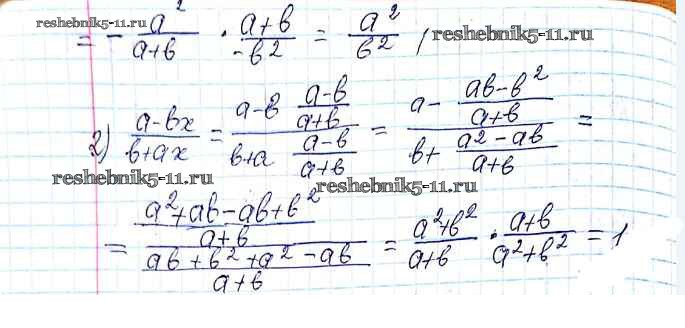 reshebnik5-11.ru
= - a²/(a+b) · (a+b)/(-b²) = a²/b² / reshebnik5-11.ru
2) (a-bx)/(b+ax) = (a-b (a-b)/(a+b))/(b+a (a-b)/(a+b)) = (a- (ab-b²)/(a+b))/(b+ (a²-ab)/(a+b)) =
reshebnik5-11.ru reshebnik5-11.ru
= ((a²+ab-ab+b²)/(a+b))/((ab+b²+a²-ab)/(a+b)) = (a²+b²)/(a+b) · (a+b)/(a²+b²) = 1